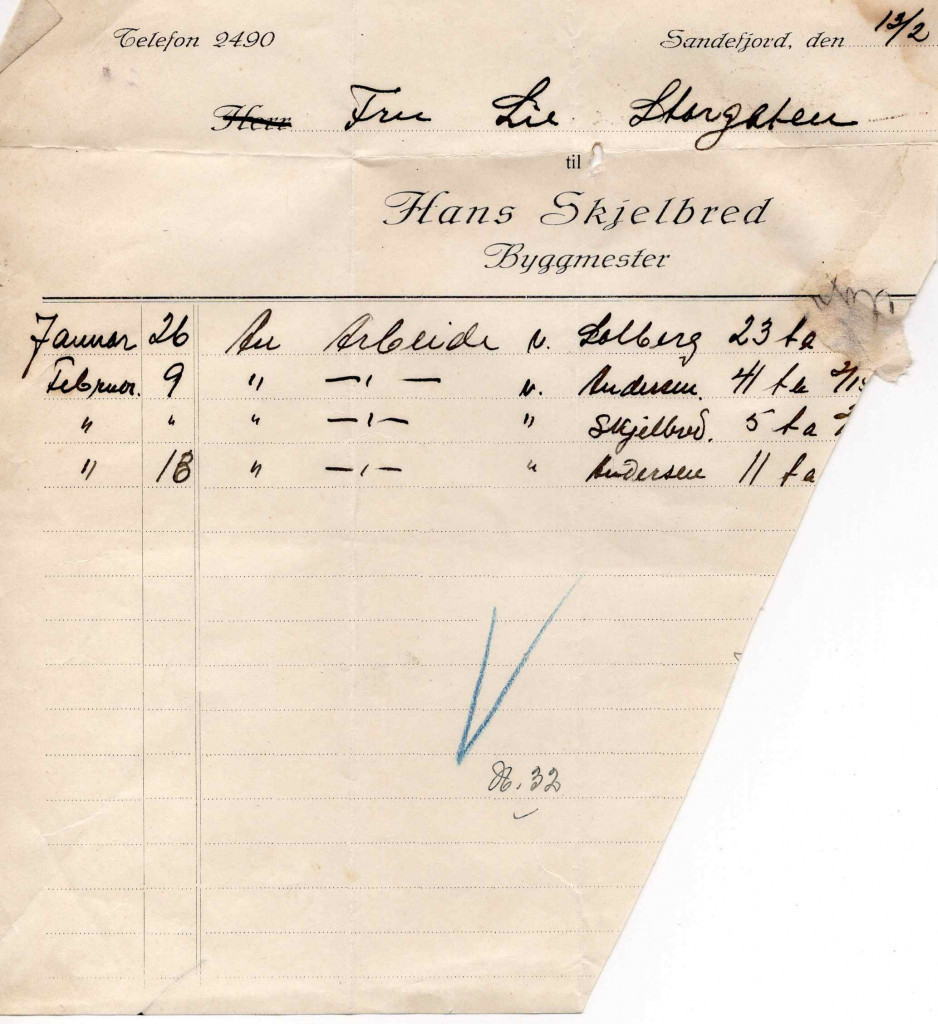 Telefon 2490 Sandefjord, den 13/2
Herr Fru Lie Storgaten
til
Hans Skjelbred
Byggmester
Januar 26 An Arbeide v. Solberg 23 t a
Februar. 9 " —"— v. Andersen. 41 t a
" " " —"— " Skjelbred. 5 t a
" 13 " —"— " Andersen 11 t a
N. 32